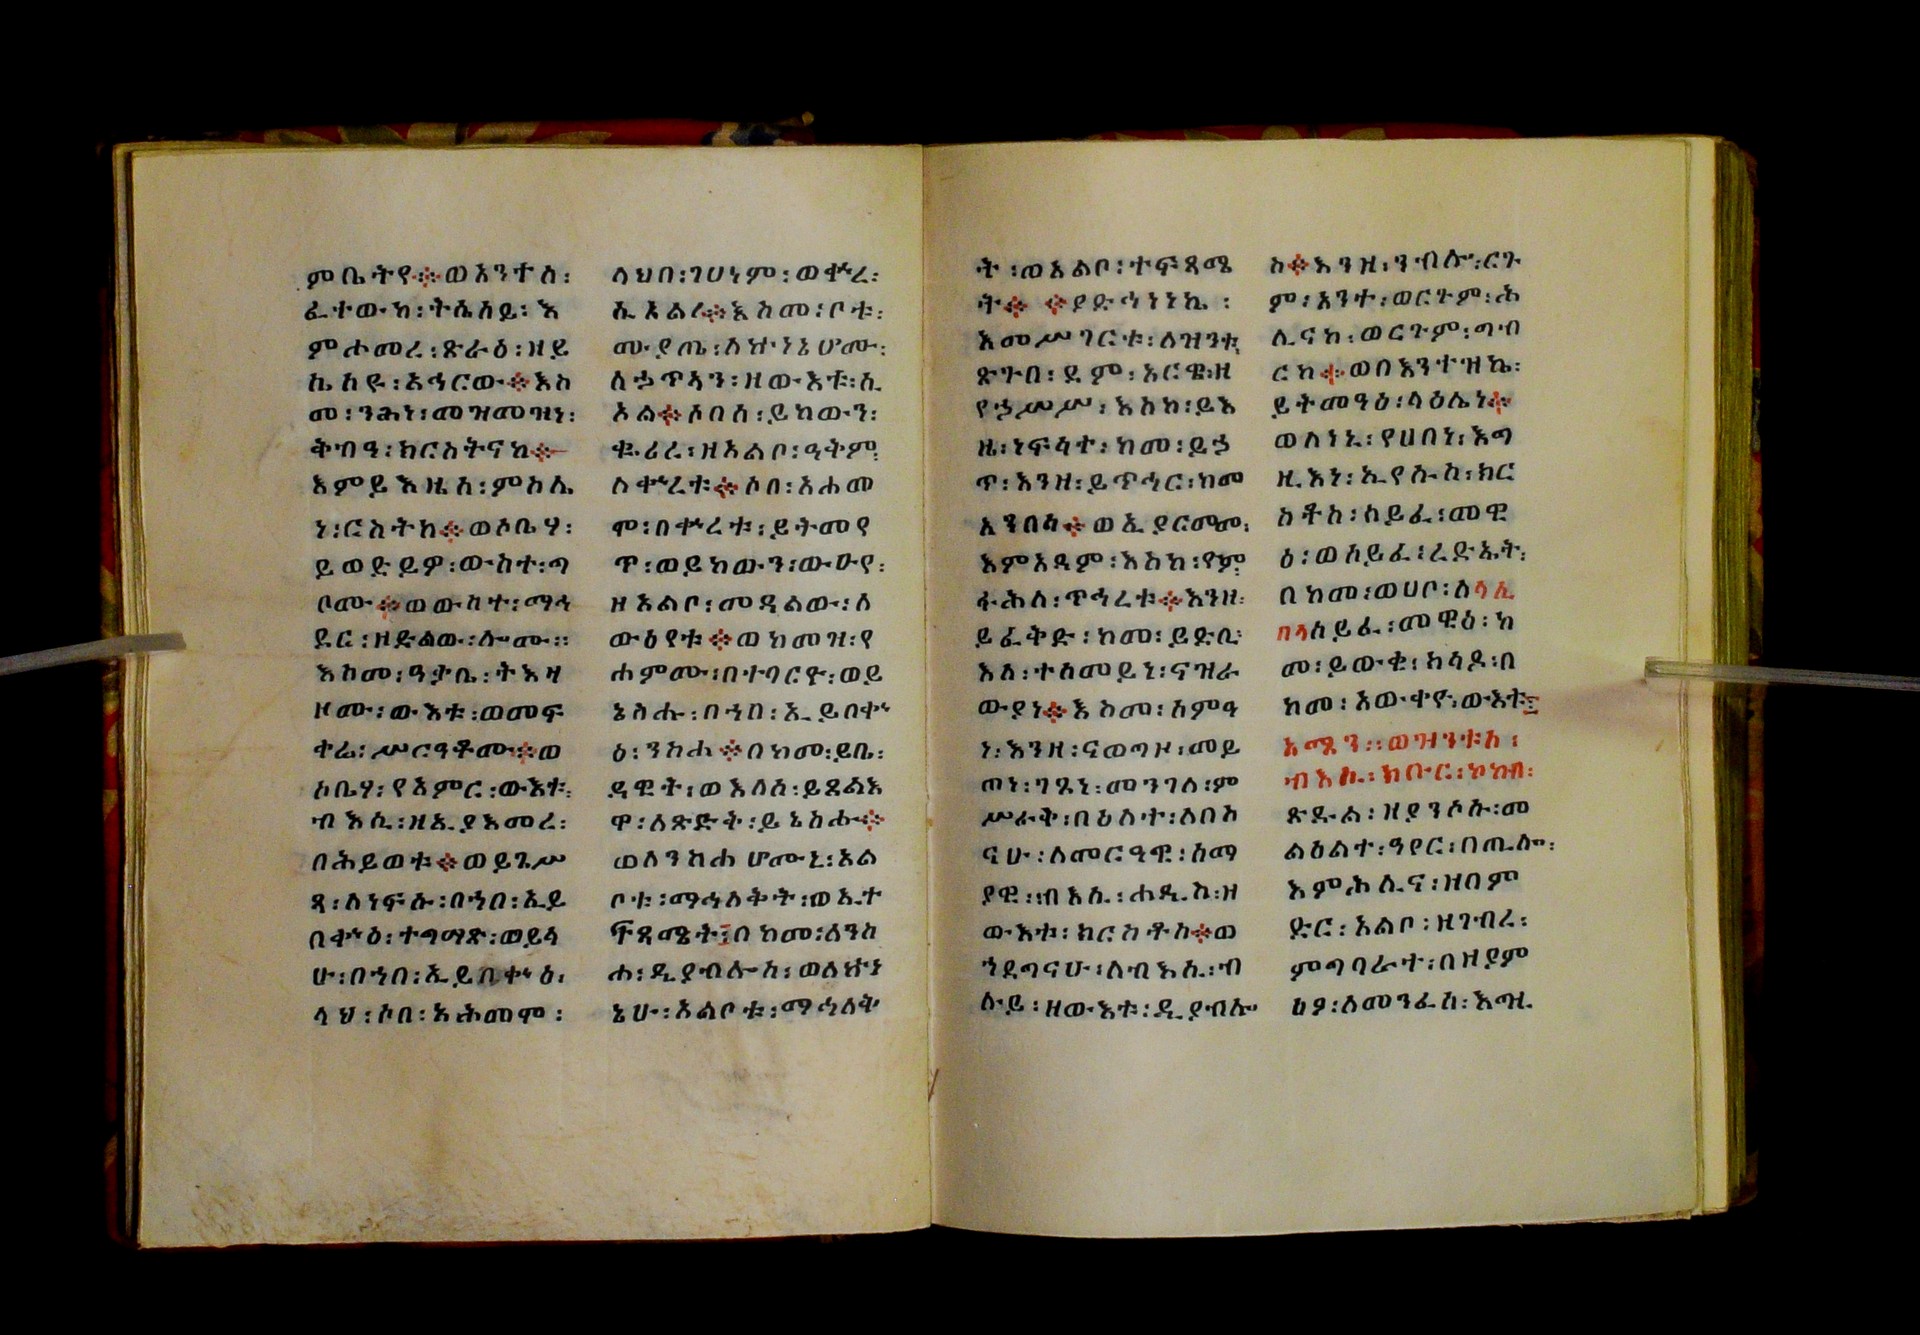 ምቤትየ፨ወአንተሰ፡
ፈተውከ፡ትሴሰይ፡እ
ምሐመረ፡ጽራዕ፡ዘይ
ኬከዩ፡አኅርው፨እስ
መ፡ንሕነ፡መዝመዝነ፡
ቅብዓ፡ክርስትናከ፨
እምይእዜሰ፡ምስሌ
ነ፡ርስትከ፨ወሶቤሃ፡
ይወድይዎ፡ውስተ፡ጣ
ቦሙ፨ወውስተ፡ማኅ
ደር፡ዘድልው፡ሎሙ።
እስመ፡ዓቃቤ፡ትእዛ
ዞሙ፡ውእቱ፡ወመፍ
ቀሬ፡ሥርዓቶሙ፨ወ
ሶቤሃ፡የአምር፡ውእቱ፡
ብእሲ፡ዘኢያእመረ፡
በሕይወቱ፨ወይጌሥ
ጻ፡ለነፍሱ፡በኀበ፡ኢይ
በቍዕ፡ተግማጽ፡ወይላ
ሁ፡በኀበ፡ኢይበቍዕ፡
ላህ፡ሶበ፡አሕመሞ፡
ላህበ፡ገሀነም፡ወቍረ፡
ኢእልረ፨እስመ፡ቦቱ፡
ሙያጤ፡ለኵነኔሆሙ፡
ለኃጥኣን፡ዘውእቱ፡ሲ
ኦል፨ሶበሰ፡ይከውን፡
ቁሪረ፡ዘአልቦ፡ዓቅም፡
ለቍረቱ፨ሶበ፡አሐመ
ሞ፡በቍረቱ፡ይትመየ
ጥ፡ወይከውን፡ውዑየ፡
ዘአልቦ፡መዳልው፡ለ
ውዕየቱ፨ወከመዝ፡የ
ሐምሙ፡በተባርዮ፡ወይ
ኔስሑ፡በኀበ፡ኢይበቍ
ዕ፡ንስሐ፨በከመ፡ይቤ፡
ዳዊት፡ወእለሰ፡ይጸልእ
ዋ፡ለጽድቅ፡ይኔስሑ፨
ወለንስሐሆሙኒ፡አል
ቦቱ፡ማኅለቅት፡ወኢተ
ፍጻሜት፤በከመ፡ለንስ
ሐ፡ዲያብሎስ፡ወለኵነ
ኔሁ፡አልቦቱ፡ማኅለቅ
ት፡ወአልቦ፡ተፍጻሜ
ት፨ ፨ያድኅነነኬ፡
እመሥገርቱ፡ለዝንቱ
ጽጉበ፡ደም፡አርዌ፡ዘ
የኃሥሥ፡እስከ፡ይእ
ዜ፡ነፍሳተ፡ከመ፡ይኃ
ጥ፡እንዘ፡ይጥኅር፡ከመ
አንበሳ፨ወኢያርመመ፡
እምአዳም፡እስከ፡የም
ፋሕስ፡ጥኅረቱ፨እንዘ፡
ይፈቅድ፡ከመ፡ይድቢ፡
እለ፡ተሰመይነ፡ናዝራ
ውያነ፨እስመ፡ሰምዓ
ነ፡እንዘ፡ናወጣዞ፡መይ
ጠነ፡ገጸነ፡መንገለ፡ም
ሥራቅ፡በዕለተ፡ለበአ
ናሁ፡ለመርዓዊ፡ሰማ
ያዊ፡ብእሲ፡ሐዲስ፡ዘ
ውእቱ፡ክርስቶስ፨ወ
ኀደግናሁ፡ለብእሲ፡ብ
ሉይ፡ዘውእቱ፡ዲያብሎ
ስ፨እንዘ፡ንብሎ፡ርጉ
ም፡አንተ፡ወርጉም፡ሕ
ሊናከ፡ወርጉም፡ግብ
ርከ፨ወበእንተዝኬ፡
ይትመዓዕ፡ላዕሌነ፨
ወለነኒ፡የሀበነ፡እግ
ዚእነ፡ኢየሱስ፡ክር
ስቶስ፡ሰይፈ፡መዊ
ዕ፡ወሰይፈ፡ረድኤት፡
በከመ፡ወሀቦ፡ለላሊ
በላሰይፈ፡መዊዕ፡ከ
መ፡ይውቂ፡ከላዶ፡በ
ከመ፡አውቀዮ፡ውእቱ፤
አሜን።ወዝንቱሰ፡
ብእሲ፡ክቡር፡ኮከብ፡
ጽዱል፡ዘያንሶሱ፡መ
ልዕልተ፡ዓየር፡በጢሎ፡
እምሕሊና፡ዘበም
ድር፡አልቦ፡ዘገብረ፡
ምግባራተ፡በዘያም
ዕዖ፡ለመንፈሰ፡እግዚ